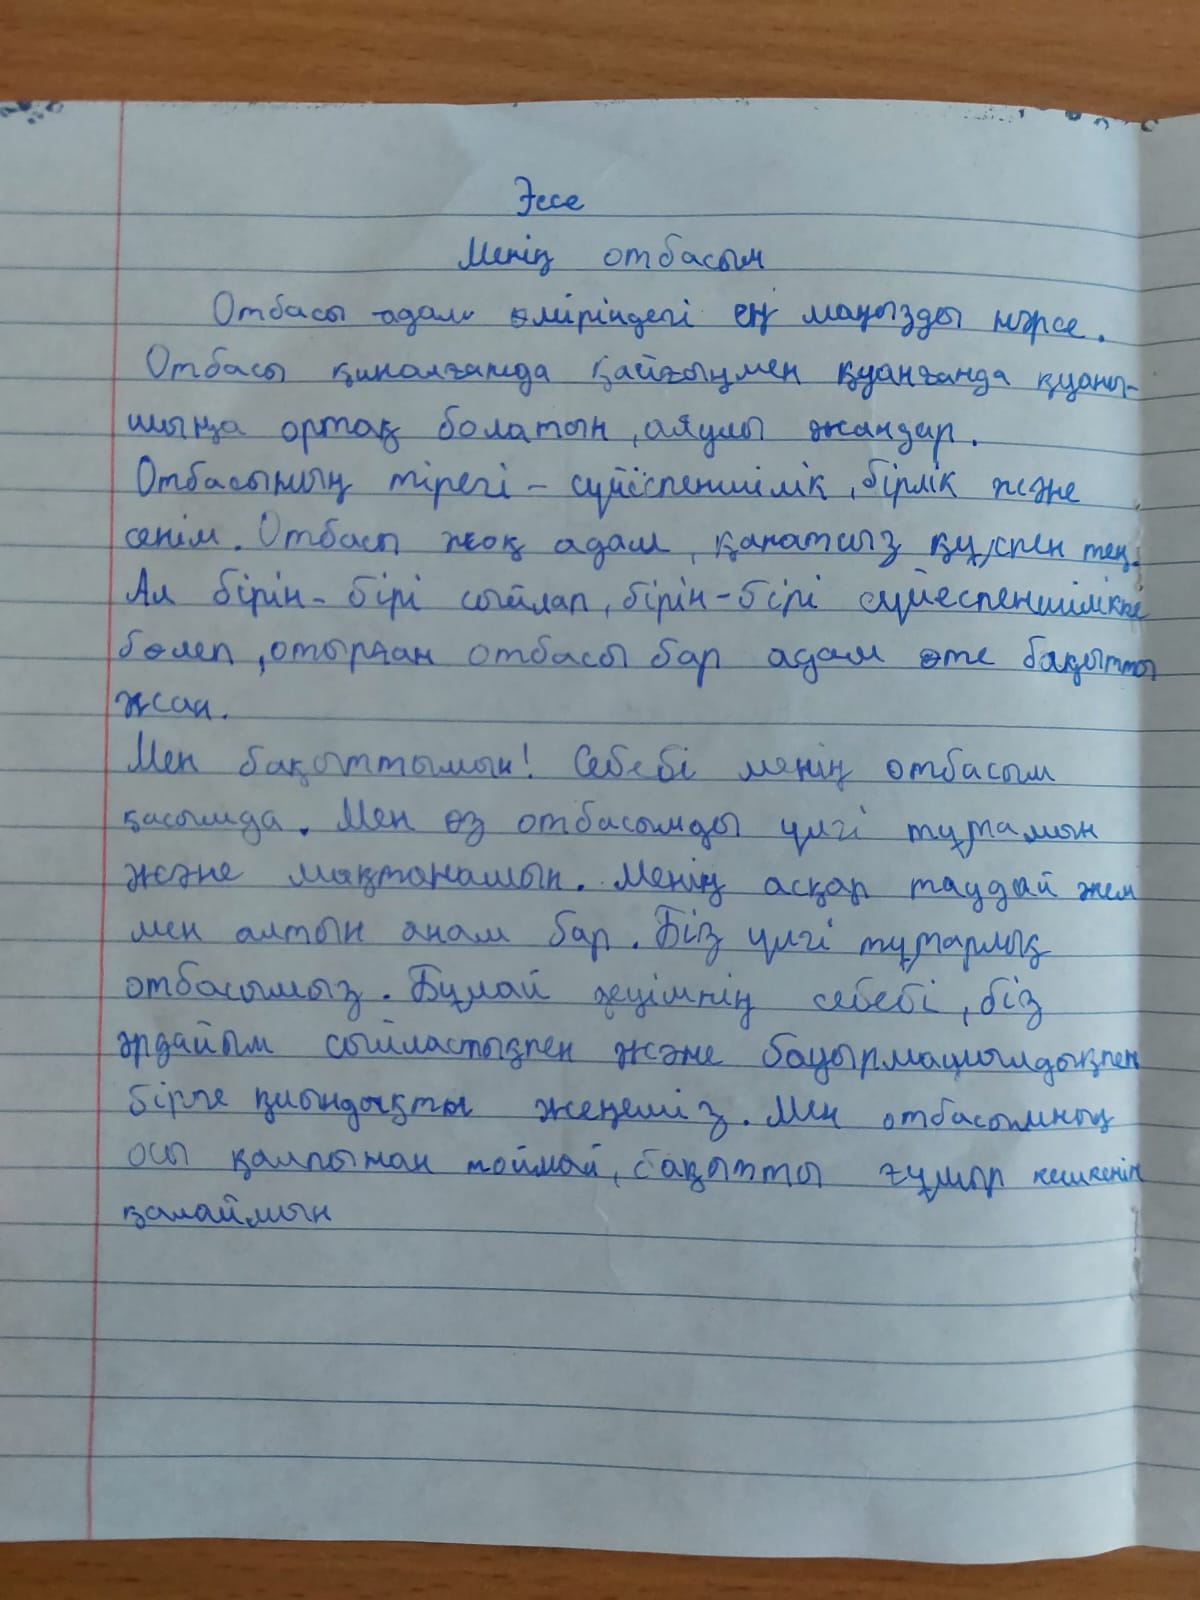 Эссе
Менің отбасым
Отбасы адам өміріндегі ең маңызды нәрсе.
Отбасы қиналғанда қайғыңмен қуанғанда қуаны-
шыңа ортақ болатын, аяулы жандар.
Отбасының тірегі - сүйіспеншілік, бірлік және
сенім. Отбасы жоқ адам, қанатсыз құспен тең.
Ал бірін-бірі сыйлап, бірін-бірі сүйеспеншілікке
бөлеп, отырған отбасы бар адам өте бақытты
жан.
Мен бақыттымын! Себебі менің отбасым
қасымда. Мен өз отбасымды үлгі тұтамын
және мақтанамын. Менің асқар таудай әкем
мен алтын анам бар. Біз үлгі тұтарлық
отбасымыз. Бұлай деуімнің себебі, біз
әрдайым сыйластықпен және бауырмашылдықпен
бірге қиындықты жеңеміз. Мен отбасымның
осы қалпынан таймай, бақытты ғұмыр кешкенін
қалаймын